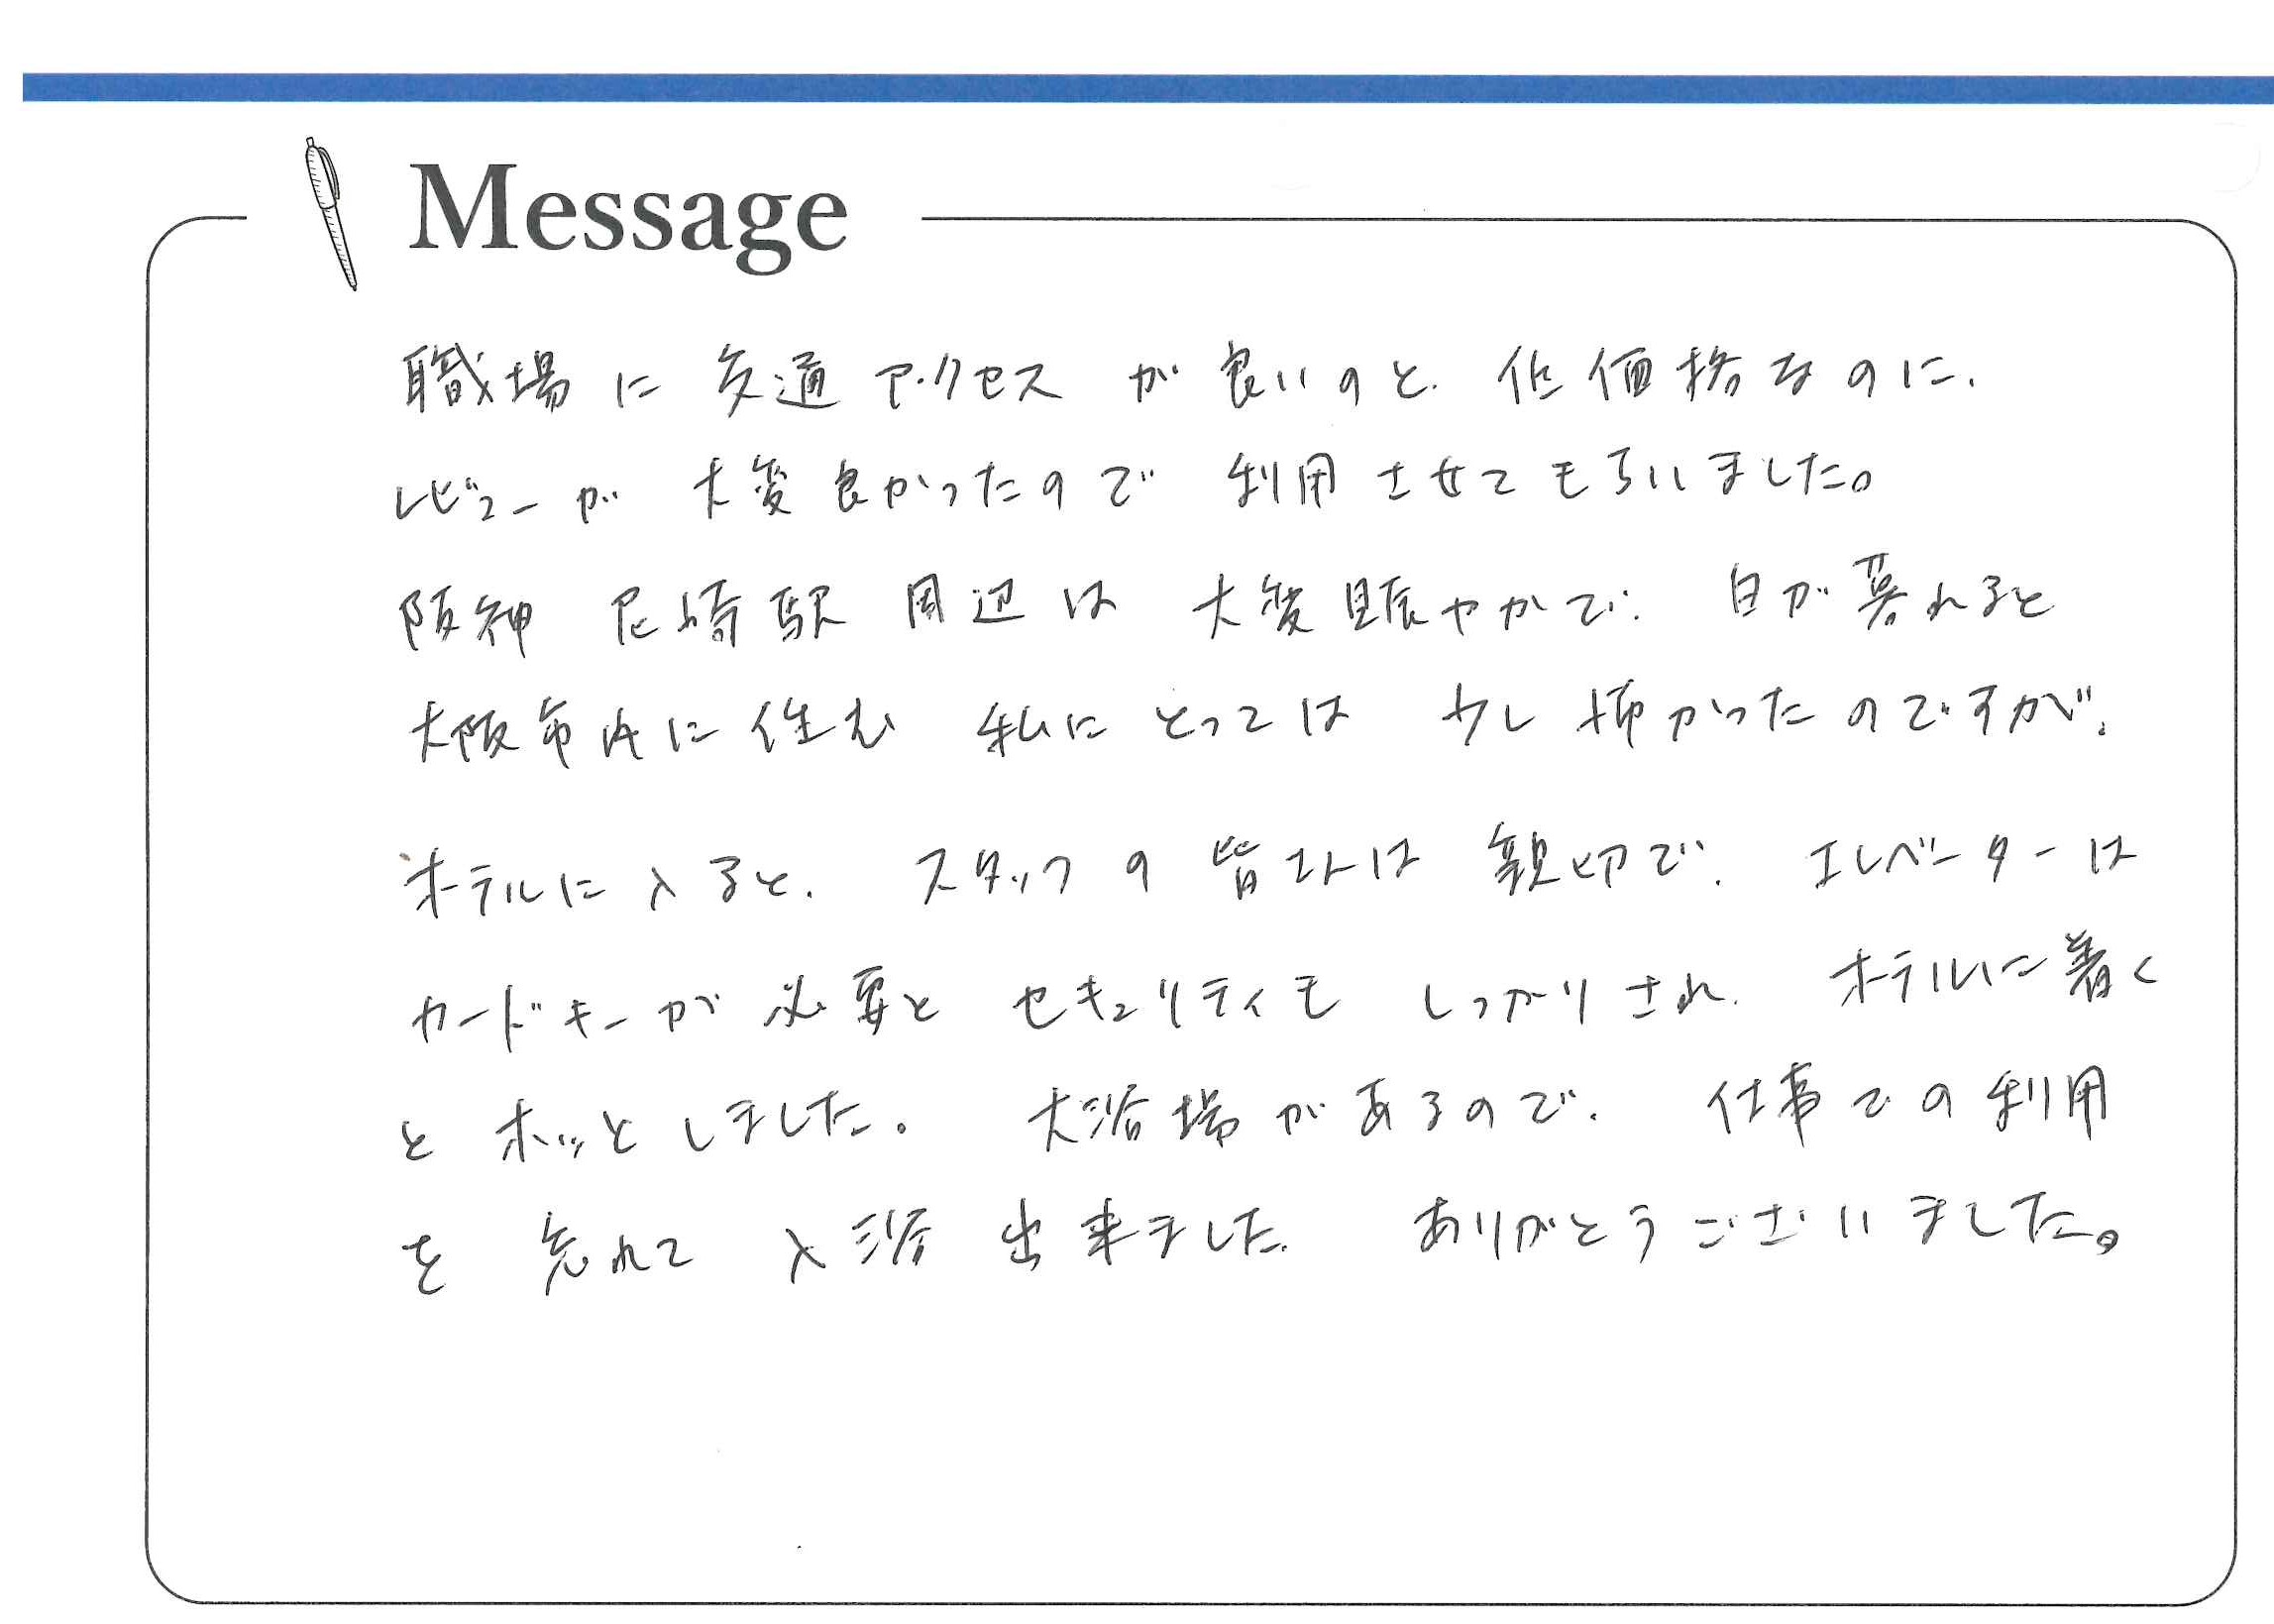 Message
職場に交通アクセスが良いのと、低価格なのに、
レビューが大変良かったので利用させてもらいました。
阪神尼崎駅周辺は大変賑やかで、日が暮れると
大阪市内に住む私にとっては少し怖かったのですが、
ホテルに入ると、スタッフの皆さんは親切で、エレベーターは
カードキーが必要とセキュリティもしっかりされ、ホテルに着く
とホッとしました。大浴場があるので、仕事での利用
を忘れて入浴出来ました。ありがとうございました。